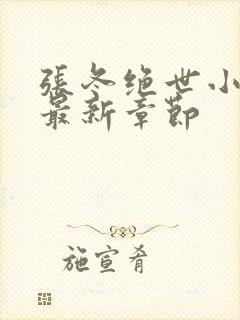 張冬绝世小
最新章節
施宣肴